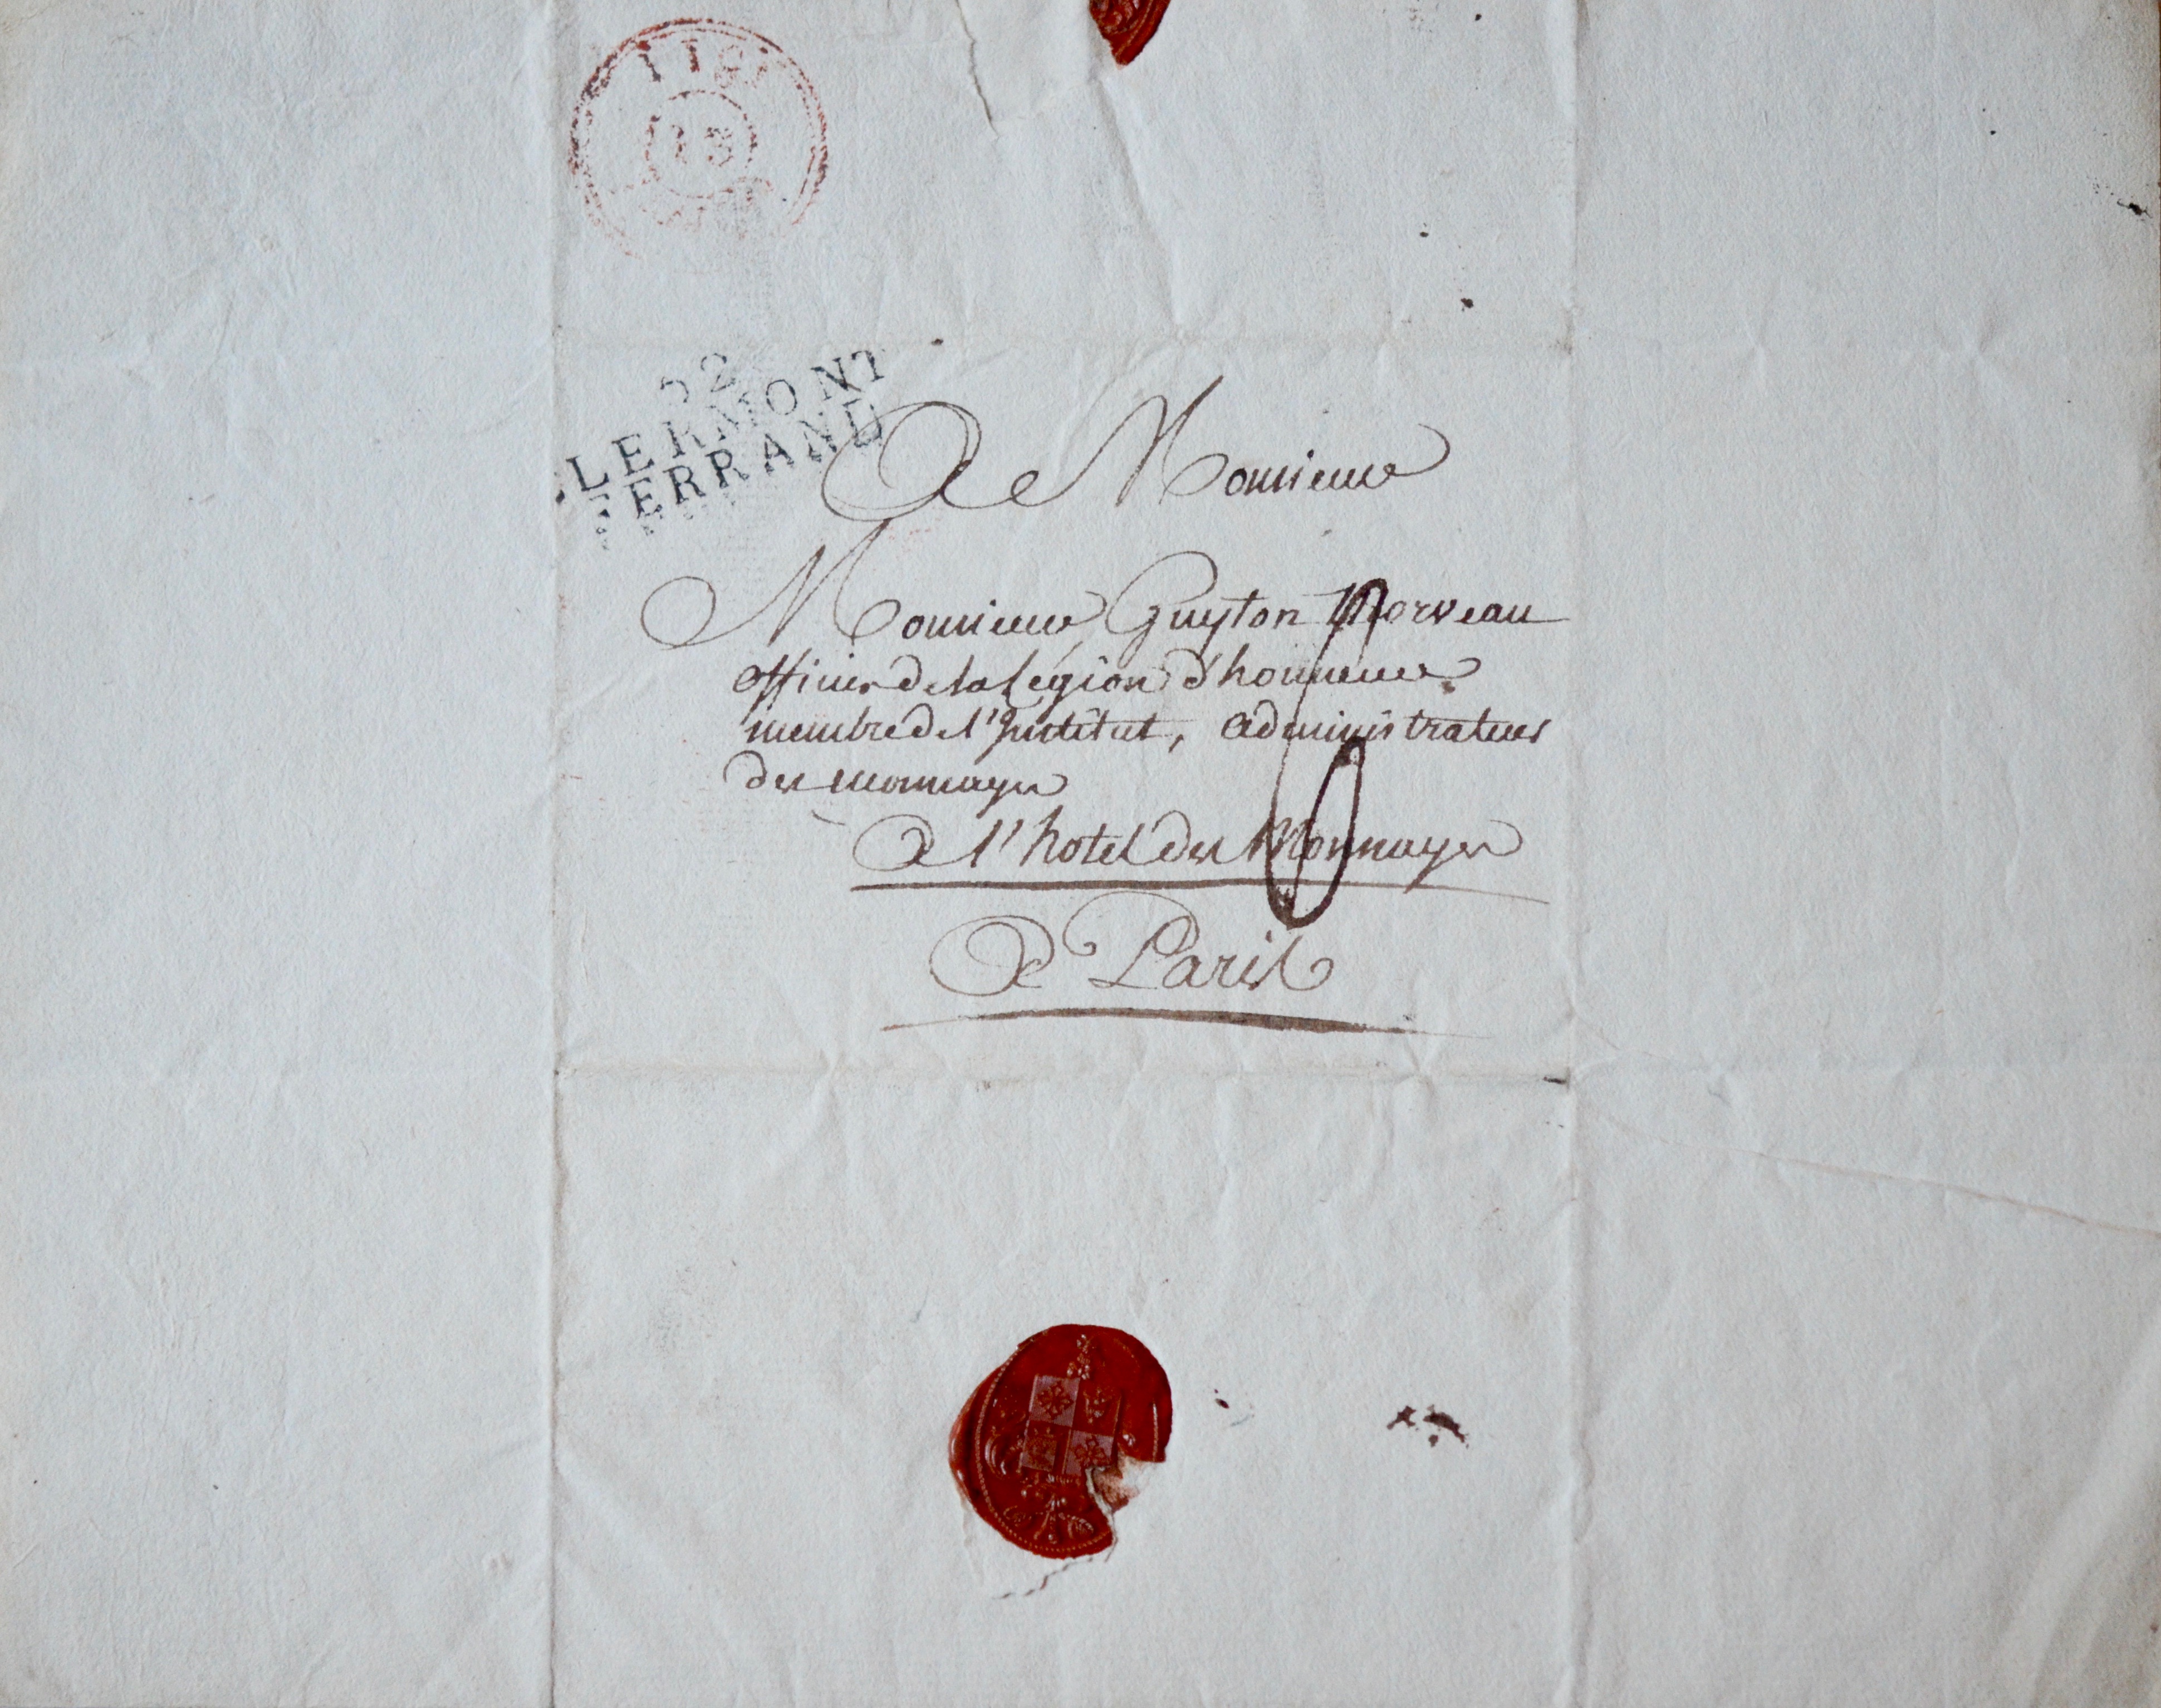 13
62
CLERMONT
FERRAND
A Monsieur
Monsieur Guyton Morveau
officier de la Légion d'honneur
membre de l'Institut, administrateur
des monnayes
A l'hotel des Monnayes
A Paris